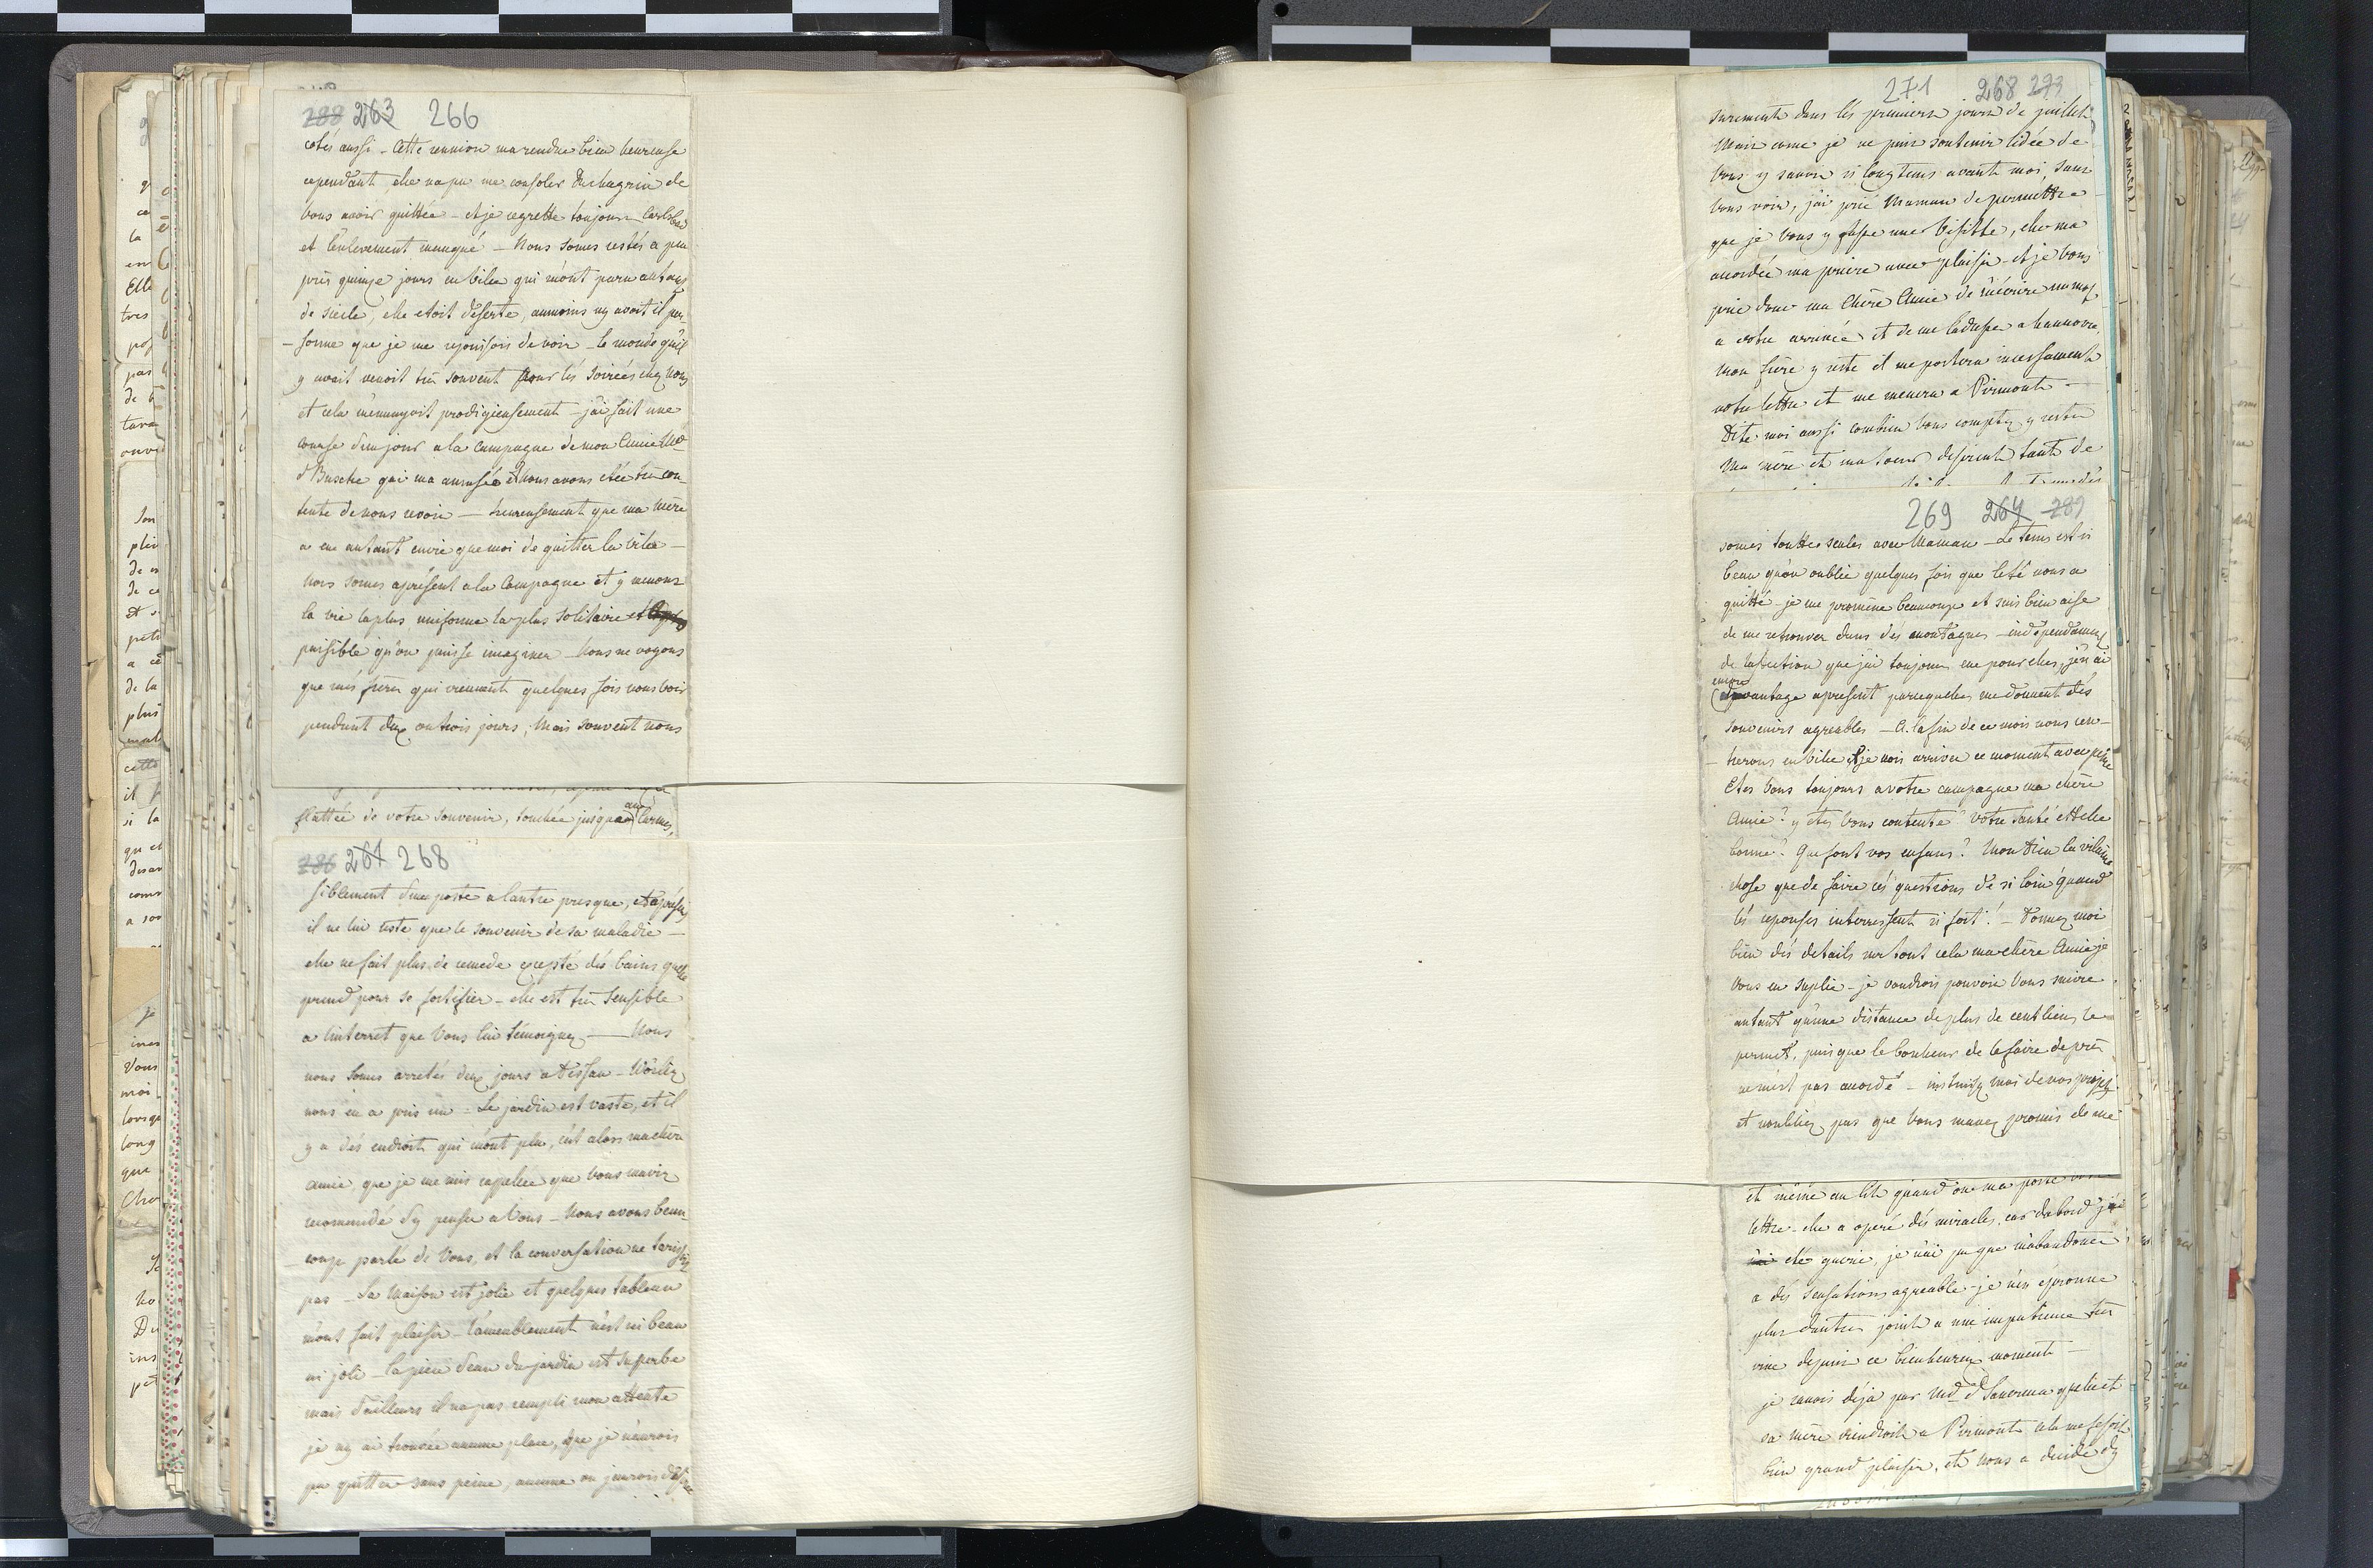 288 263 266
cotés aussi - Cette reunion ma rendue bien heureuse
cependant elle na pu me consoler du chagrin de
vous avoir quittée - et je regrette toujours Carlsbad
et l'enlevement manqué - Nous somes restés a peu
près quinze jours en ville qui m'ont paru autant
de siecle, elle etoit déserte, aumoins ny avoit il per
-sonne que je me rejouissois de voir - le monde qu'il
y avoit venoit très souvent pour les soirées chez nous
et cela m'ennuyoit prodigieusement - j'ai fait une
course d'un jour a la campagne de mon Amie Md
d Busche qui ma amusée et nous avons etée très con-
tente de nous revoir - heureusement que ma Mère
a eu autant envie que moi de quitter la ville -
nous somes apresent a la Campagne et y menons
la vie la plus uniforme la plus solitaire et
paisible qu'on puisse imaginer - Nous ne voyons
que mes frères qui viennent quelques fois nous voir
pendant deux ou trois jours, Mais souvent nous
flattée de votre souvenir, touchée jusqu'aux larmes,
286 261 268
siblement d'une poste a lautre presque, et apresent
il ne lui reste que le souvenir de sa maladie -
elle ne fait plus de remede excepté dés bains quelle
prend pour se fortifier - elle est très sensible
a linterret que Vous lui témoignez - Nous
nous somes arretés deux jours a Dessau - Wörlitz
nous en a pris un - Le jardin est vaste, et il
y a dés endroits qui m'ont plu, c'est alors ma chère
amie, que je me suis rappellée que vous m'aviez
recomandé d'y penser a Vous - Nous avons beau-
coup parlé de Vous, et la conversation ne tarissoit
pas - La Maison est jolie et quelques tableau
m'ont fait plaisir - l'ameublement n'est ni beau
ni joli - la pièce d'eau du jardin est superbe
mais d'ailleurs il na pas rempli mon attente
je ny ai trouvée aucune place, que je n'aurois
pu quitter sans peine, aucune ou j'aurois désiré
271 268 293
surement dans les premiers jours de juillet
Mais come je ne puis soutenir lidée de
Vous y savoir si longtems avant moi, sans
vous voir, j'ai prié Maman de permettre
que je Vous y fasse une Visitte, elle ma
accordée ma priere avec plaisir - et je Vous
prie donc ma Chère Amie de m'écrire un mot
a votre arrivée et de me l'adresser a hannovre,
mon frere y reste il me portera incessament
votre lettre et me menera a Pirmont -
Dite moi aussi combien Vous comptez y rester
Ma mère et ma soeur desirent tant de
269 264 289
somes toutte seules avec Maman - Le tems est si
beau qu'on oublie quelques fois que leté nous a
quitté - je me promène beaucoup et suis bien aise
de me retrouver dans dés montagnes - independament
de lafection que j'ai toujours eue pour elles, j'en ai
encore
davantage apresent parcequelles me donnent dés
souvenirs agreables - A la fin de ce mois nous ren-
-trerons en ville et je vois arriver ce moment avec peine
Etes Vous toujours a votre campagne ma chère
Amie? y etes Vous contente? Votre santé est elle
bonne? Que font vos enfans? Mon Dieu la vilaine
chose que de faire cés questions de si loin quand
lés reponses interressent si fort! - Donnez moi
bien dés details sur tout cela ma chère Amie je
Vous en suplie - je voudrois pouvoir Vous suivre
autant qu'une distance de plus de cent lieues le
permet, puisque le bonheur de le faire de près
ne m'est pas accordé - instruisez moi de vos projets
et n'oubliez pas que Vous m'avez promis de me
et même au lit quand on ma porté
lettre - elle a operé dés miracles, car dabord j'ai
été guerie, je n'ai pu que m'abandonner
a dés sensations agreable je n'en éprouve
plus dautres joint a une impatience très
vive depuis ce bienheureux moment -
je savois déja par Md d
sa mère viendroit a Pirmont cela me fesoit
bien grand plaisir, et nous a decidé d'y